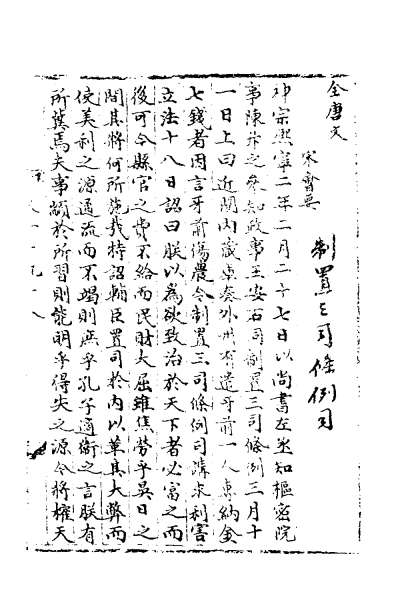 全唐文
宋會要
制置三司條例司
神宗熙寧二年二月二十七日以尚書左丞知樞密院
事陳升之參知政事王安石同制置三司條例三月十
一日上曰近閱内藏庫奏外州有遣牙前一人專納金
七錢者因言牙前傷農令制置三司條例司講求利害
立法十八日詔曰朕以為欲致治於天下者必富之而
後可今縣官之費不給而民財大屈雖焦勞乎昃日之
間其將何所施哉特詔輔臣置司於内以革其大弊而
使美利之源通流而不竭則庶乎孔子適衛之言朕有
所冀焉夫事顓於所習則能明乎得失之源今將權天